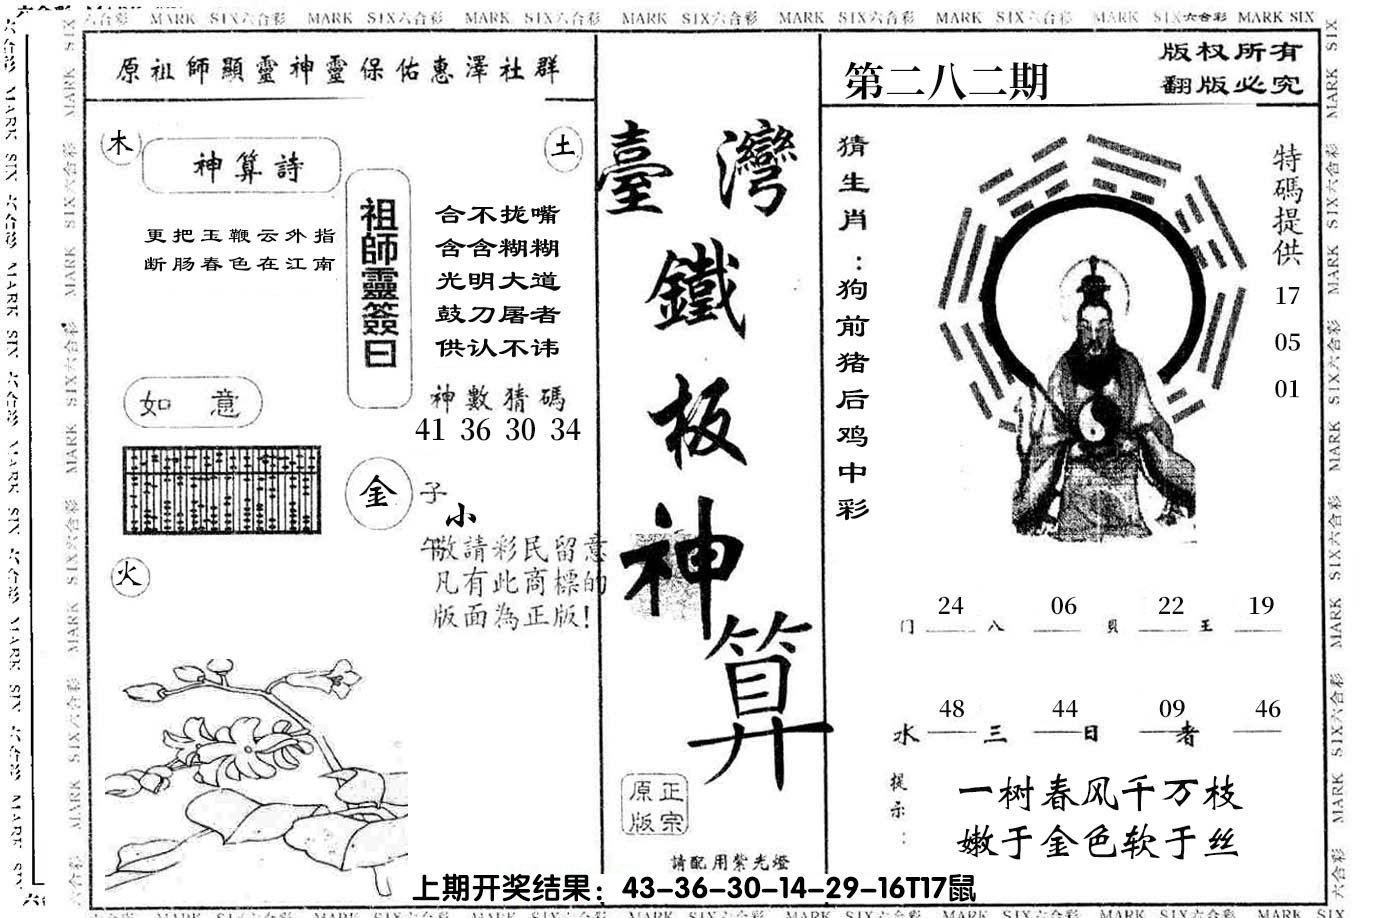 六合彩 MARK SIX六合彩 MARK SIX六合彩 MARK SIX六合彩 MARK SIX六合彩 MARK SIX六合彩 MARK SIX六合彩 MARK SIX六合彩 MARK SIX
原祖師顯靈神靈保佑惠澤社群
木
神算詩
土
更把玉鞭云外指
断肠春色在江南
祖師靈簽曰
合不拢嘴
含含糊糊
光明大道
鼓刀屠者
供认不讳
神數猜碼
41 36 30 34
如 意
金
子
小
午
敬請彩民留意
凡有此商標的
版面為正版!
火
臺灣
鐵
板
神
算
正宗
原版
請配用紫光燈
第二八二期
版权所有
翻版必究
猜生肖:狗前猪后鸡中彩
特碼提供
17
05
01
24 06 22 19
门 八 貝 王
48 44 09 46
水 三 日 者
提示:
一树春风千万枝
嫩于金色软于丝
上期开奖结果：43-36-30-14-29-16T17鼠